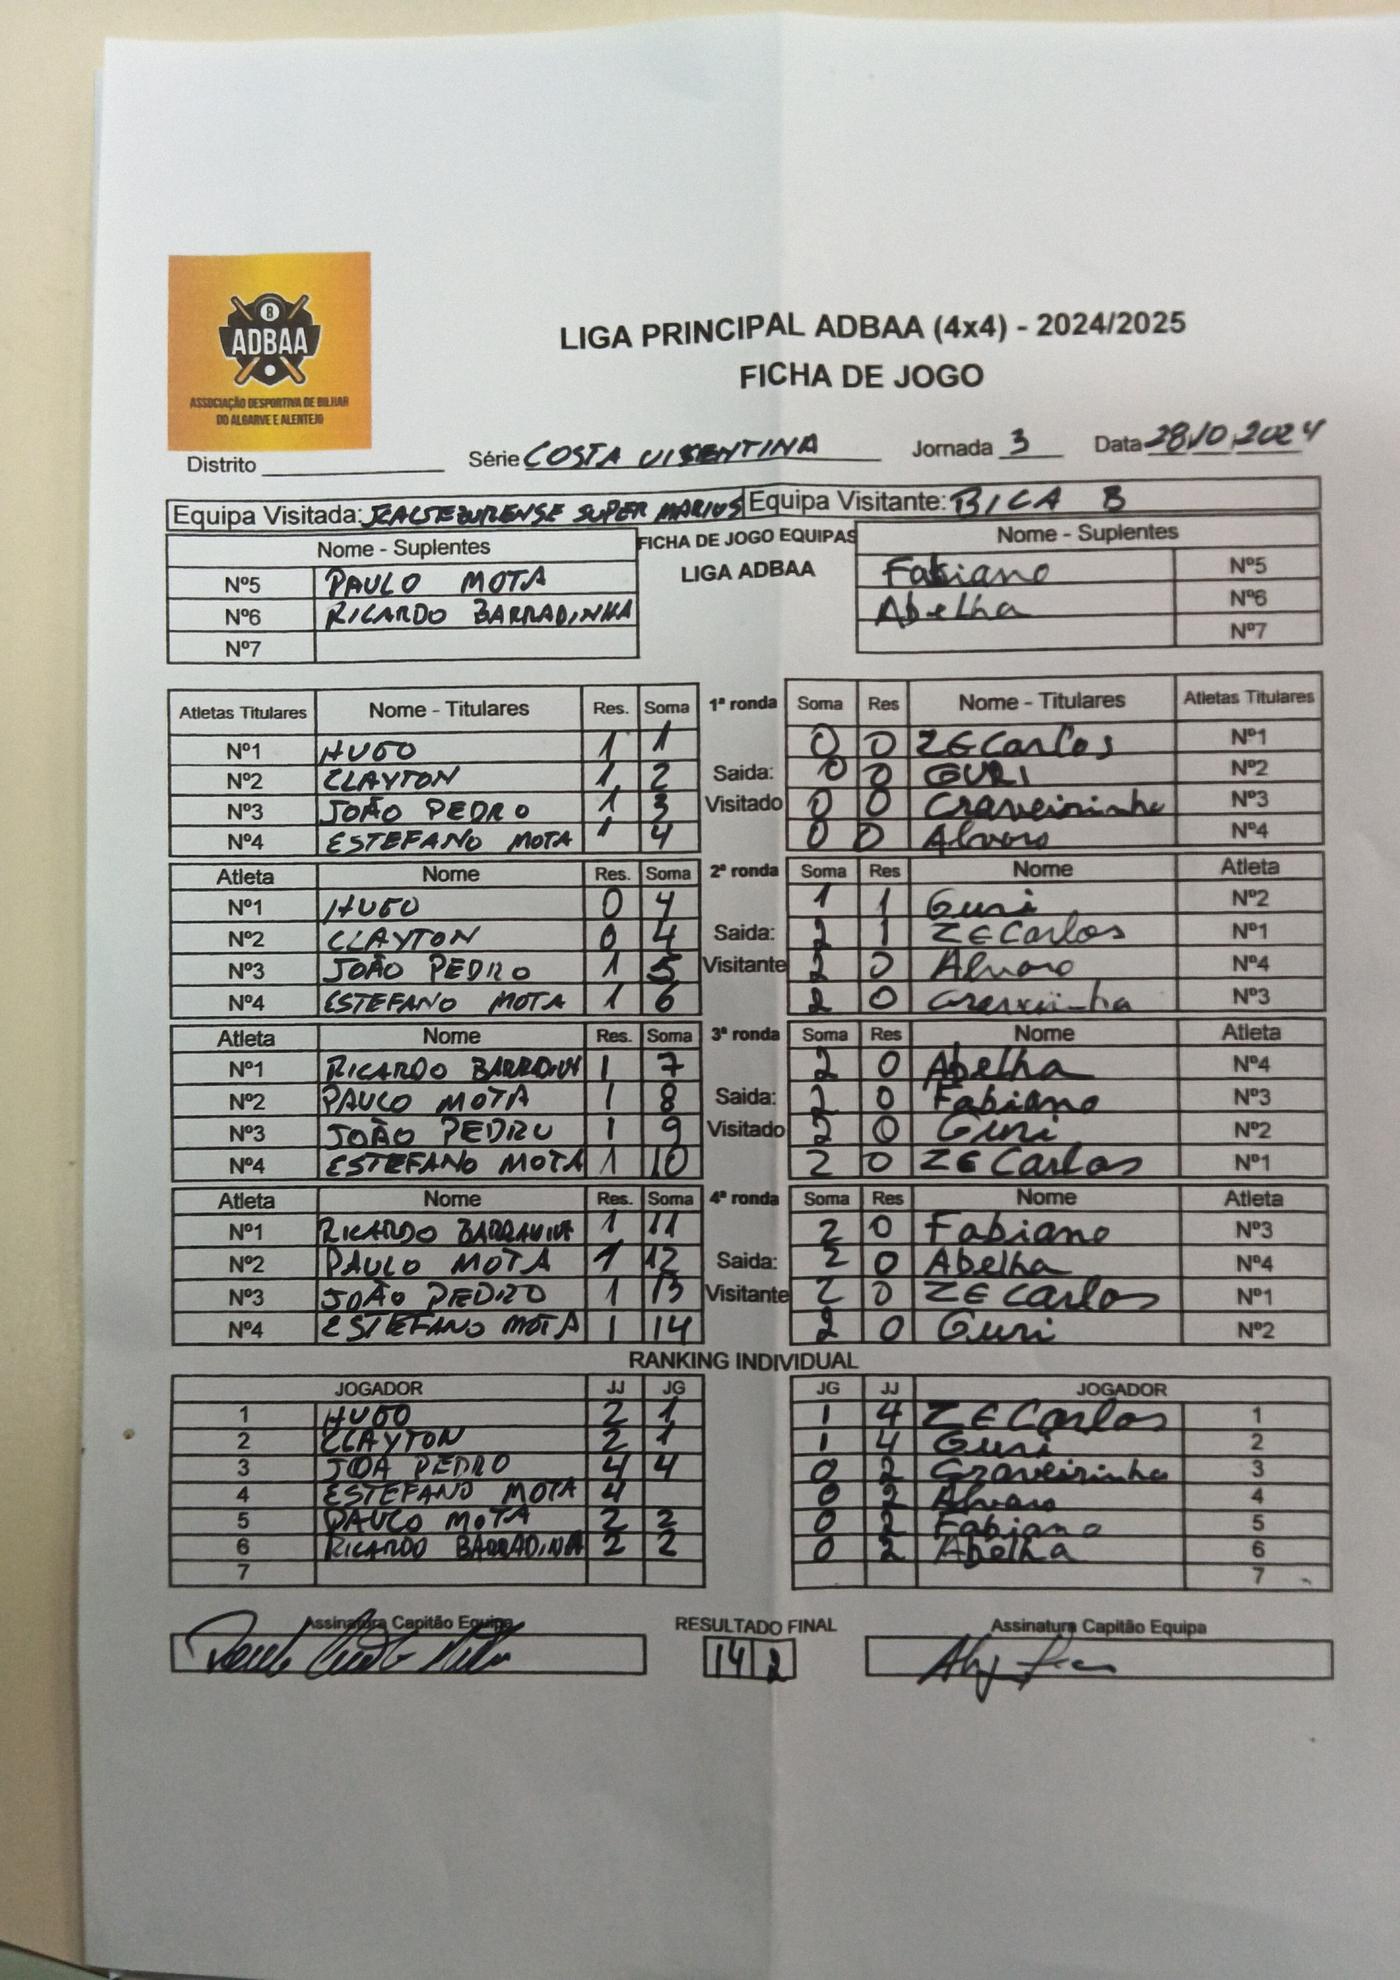 8
ADBAA
ASSOCIAÇÃO DESPORTIVA DE BILHAR
DO ALGARVE E ALENTEJO
LIGA PRINCIPAL ADBAA (4x4) - 2024/2025
FICHA DE JOGO
Distrito Série COSTA VISENTINA Jornada 3 Data 28,10,2024
Equipa Visitada: SUPER MARIUS Equipa Visitante: BICA B
Nome - Suplentes FICHA DE JOGO EQUIPAS Nome - Suplentes
LIGA ADBAA
Nº5 PAULO MOTA Fabiano Nº5
Nº6 RICARDO BARRADINHA Abelha Nº6
Nº7 Nº7
Atletas Titulares Nome - Titulares Res. Soma 1ª ronda Soma Res Nome - Titulares Atletas Titulares
Nº1 HUGO 1 1 0 0 ZE Carlos Nº1
Nº2 CLAYTON 1 2 Saida: 0 0 GURI Nº2
Nº3 JOÃO PEDRO 1 3 Visitado 0 0 Craveirinha Nº3
Nº4 ESTEFANO MOTA 1 4 0 0 Alvaro Nº4
Atleta Nome Res. Soma 2ª ronda Soma Res Nome Atleta
Nº1 HUGO 0 4 1 1 Guri Nº2
Nº2 CLAYTON 0 4 Saida: 2 1 ZE Carlos Nº1
Nº3 JOÃO PEDRO 1 5 Visitante 2 0 Alvaro Nº4
Nº4 ESTEFANO MOTA 1 6 2 0 Nº3
Atleta Nome Res. Soma 3ª ronda Soma Res Nome Atleta
Nº1 RICARDO 1 7 2 0 Abelha Nº4
Nº2 PAULO MOTA 1 8 Saida: 2 0 Fabiano Nº3
Nº3 JOÃO PEDRO 1 9 Visitado 2 0 Guri Nº2
Nº4 ESTEFANO MOTA 1 10 2 0 ZE Carlos Nº1
Atleta Nome Res. Soma 4ª ronda Soma Res Nome Atleta
Nº1 RICARDO 1 11 2 0 Fabiano Nº3
Nº2 PAULO MOTA 1 12 Saida: 2 0 Abelha Nº4
Nº3 JOÃO PEDRO 1 13 Visitante 2 0 ZE Carlos Nº1
Nº4 ESTEFANO MOTA 1 14 2 0 Guri Nº2
RANKING INDIVIDUAL
JOGADOR JJ JG JG JJ JOGADOR
1 HUGO 2 1 1 4 ZE Carlos 1
2 CLAYTON 2 1 1 4 Guri 2
3 JOA PEDRO 4 4 0 2 Craveirinha 3
4 ESTEFANO MOTA 4 0 2 Alvaro 4
5 PAULO MOTA 2 2 0 2 Fabiano 5
6 RICARDO BARRADINHA 2 2 0 2 Abelha 6
7 7
Assinatura Capitão Equipa RESULTADO FINAL Assinatura Capitão Equipa
14 2